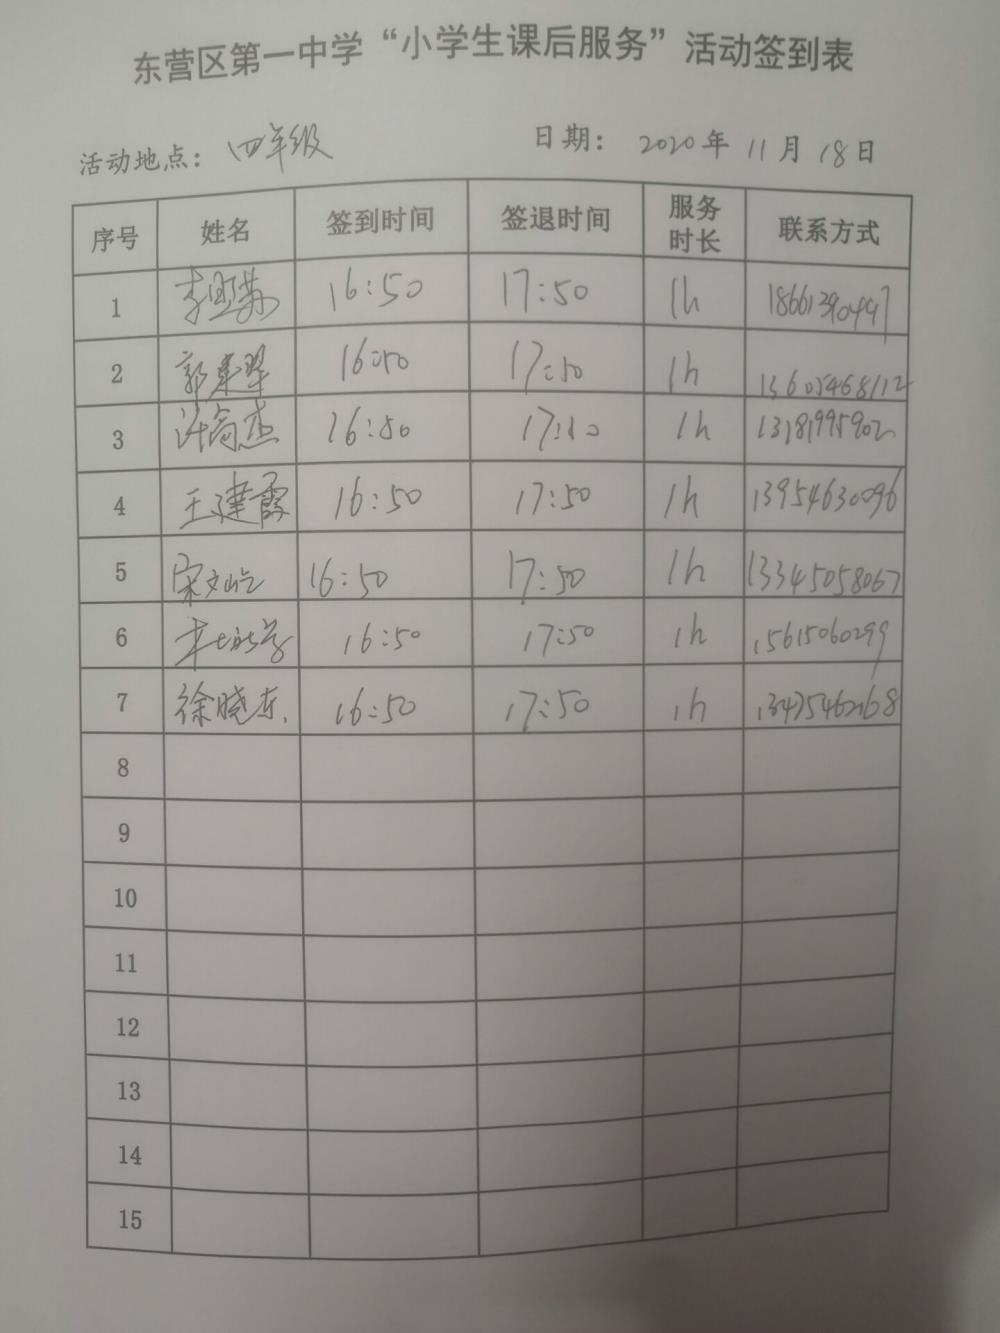 东营区第一中学“小学生课后服务”活动签到表
活动地点：四年级 日期：2020年11月18日
序号 姓名 签到时间 签退时间 服务时长 联系方式
1 16:50 17:50 1h
2 郭 16:50 17:50 1h 13605468112
3 许高杰 16:50 17:50 1h 13181995902
4 王建霞 16:50 17:50 1h 13954630096
5 宋文屹 16:50 17:50 1h 13345058067
6 16:50 17:50 1h 15615060299
7 徐晓东 16:50 17:50 1h
8
9
10
11
12
13
14
15